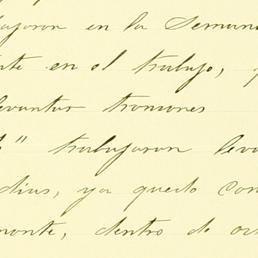 ajaron en la Semana
te en el trabajo, y
levantar tromones
" trabajaron leva
dias, ya quedo con
monte, dentro de